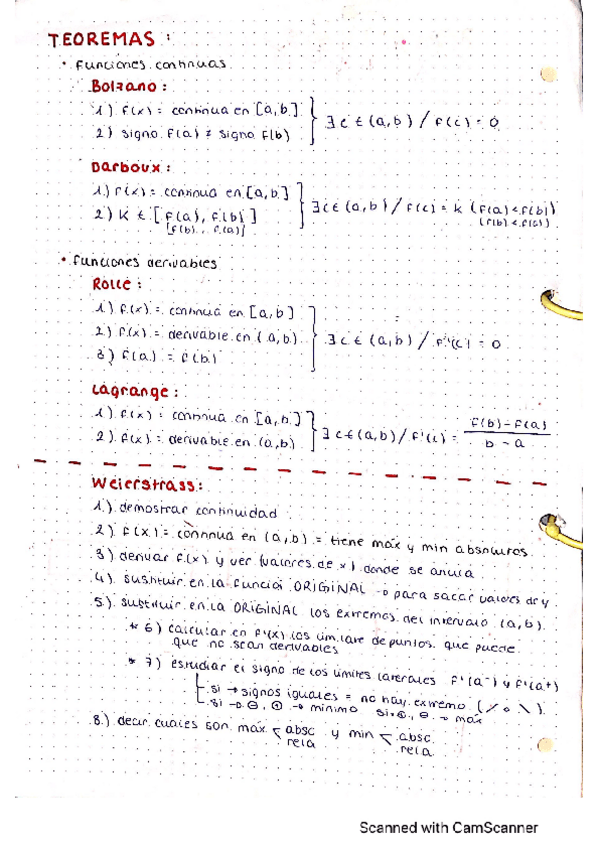 TEOREMAS :
• Funciones continuas
Bolzano :
1) f(x) = continua en [a,b]
2) signo f(a) ≠ signo f(b)
} ∃ c ∈ (a,b) / f(c) = 0
Darboux :
1) f(x) = continua en [a,b]
2) K ∈ [f(a), f(b)]
[f(b), f(a)]
} ∃ c ∈ (a,b) / f(c) = k (f(a) < f(b))
(f(b) < f(a))
• Funciones derivables
Rolle :
1) f(x) = continua en [a,b]
2) f(x) = derivable en (a,b)
3) f(a) = f(b)
} ∃ c ∈ (a,b) / f'(c) = 0
Lagrange :
1) f(x) = continua en [a,b]
2) f(x) = derivable en (a,b)
} ∃ c ∈ (a,b) / f'(c) = f(b) - f(a) / b - a
Weierstrass :
1) demostrar continuidad
2) f(x) = continua en (a,b) = tiene máx y min absolutos
3) derivar f(x) y ver (valores de x) donde se anula
4) sustituir en la función ORIGINAL → para sacar valores de y
5) sustituir en la ORIGINAL los extremos del intervalo (a,b)
* 6) calcular en f'(x) los lím late de puntos que puede
que no sean derivables
* 7) estudiar el signo de los límites laterales f'(a⁻) y f'(a⁺)
si → signos iguales = no hay extremo (/ o \)
si → ⊖, ⊕ → mínimo si ⊕, ⊖ → max
8) decir cuales son máx < absc y min < absc
rela rela
Scanned with CamScanner